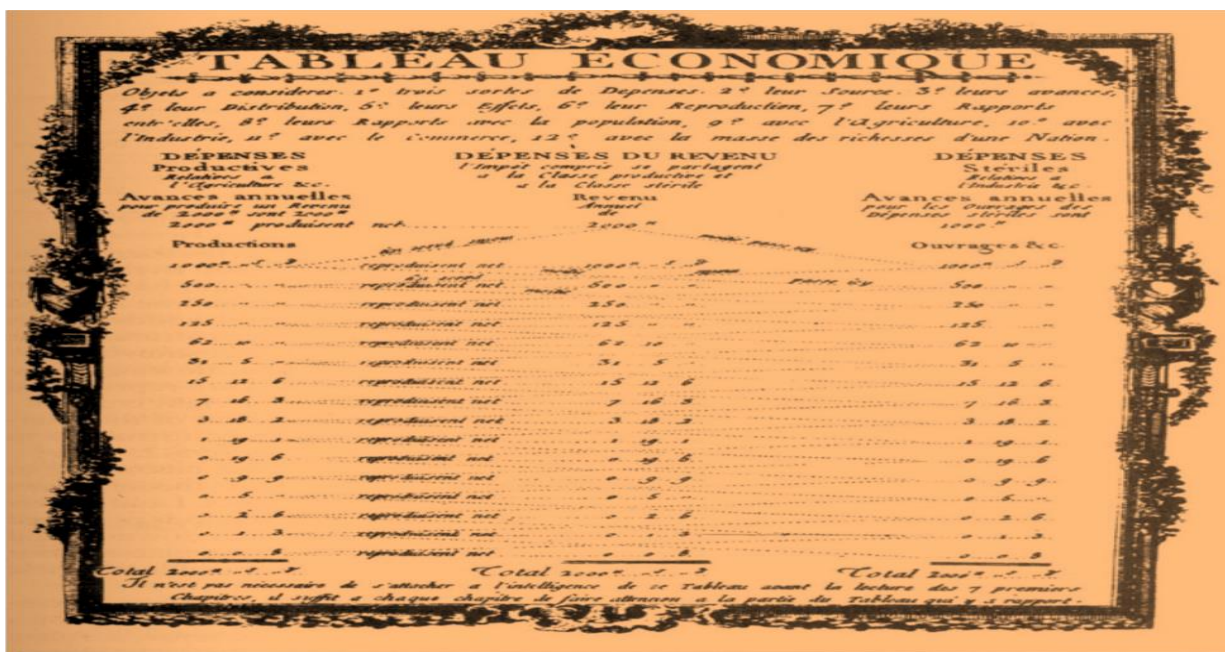 TABLEAU ECONOMIQUE
Objets a considerer. 1º trois sortes de Depenses. 2º leur Source. 3º leurs avances,
4º leur Distribution, 5º leurs Effets, 6º leur Reproduction, 7º leurs Rapports
entr'elles, 8º leurs Rapports avec la population, 9º avec l'Agriculture, 10º avec
l'Industrie, 11º avec le Commerce, 12º avec la masse des richesses d'une Nation.
DÉPENSES DÉPENSES DU REVENU DÉPENSES
Productives l'Impôt compris se partagent Stériles
Relatives a a la Classe productive et Relatives a
l'Agriculture &c. a la Classe stérile l'Industrie &c.
Avances annuelles Revenu Avances annuelles
pour produire un Revenu Annuel pour les Ouvrages des
de 2000 sont 2000 de Dépenses stériles sont
2000 produisent net 2000 1000
Productions Ouvrages &c.
1000 reproduisent net 1000 1000
500 reproduisent net 500 500
250 reproduisent net 250 250
125 reproduisent net 125 125
62 10 reproduisent net 62 10 62 10
31 5 reproduisent net 31 5 31 5
15 12 6 reproduisent net 15 12 6 15 12 6
7 16 3 reproduisent net 7 16 3 7 16 3
3 18 2 reproduisent net 3 18 2 3 18 2
1 19 1 reproduisent net 1 19 1 1 19 1
0 19 6 reproduisent net 0 19 6 0 19 6
0 9 9 reproduisent net 0 9 9 0 9 9
0 5 reproduisent net 0 5 0
0 2 6 reproduisent net 0 2 6 0 2 6
0 1 3 reproduisent net 0 1 3 0 1 3
0 0 8 reproduisent net 0 0 8 0 8
Total 2000 Total 2000 Total
Il n'est pas nécessaire de s'attacher a l'intelligence de ce Tableau avant la lecture des 7 premiers
Chapitres, il suffit a chaque chapitre de faire attention a la partie du Tableau qui y a rapport.